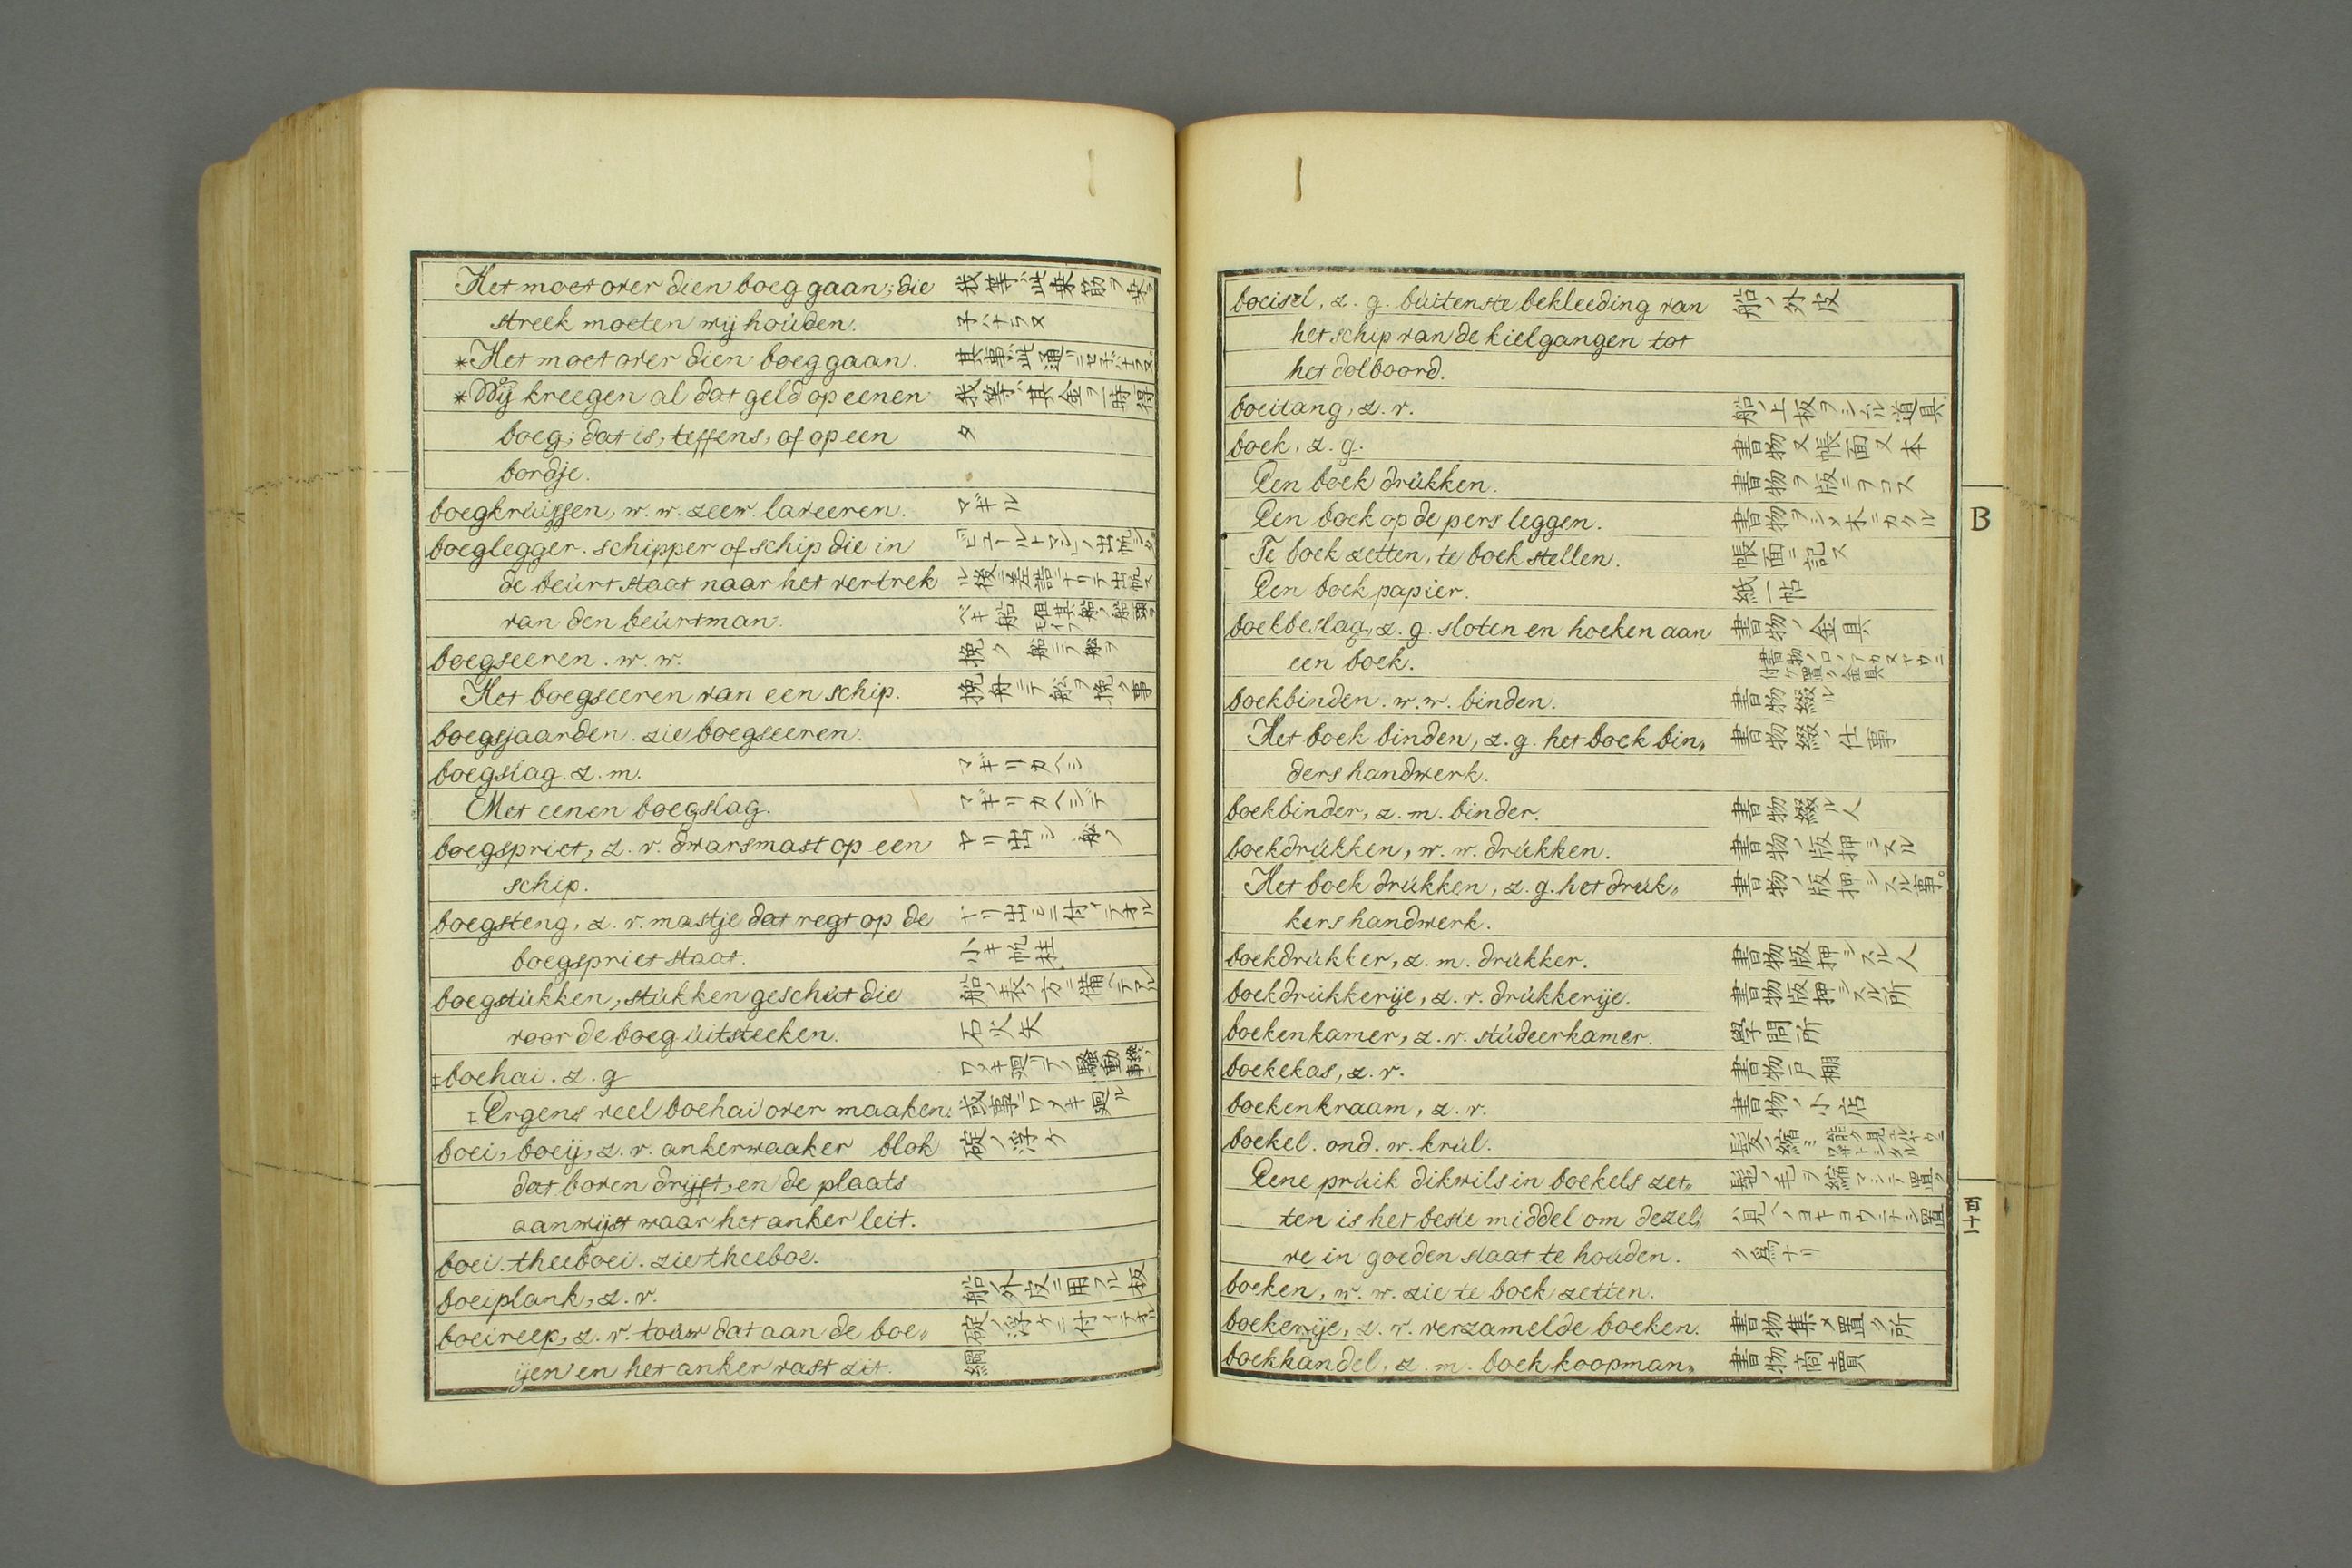 Het moet over dien boeg gaan; die 我等ハ此乗筋ヲ
streek moeten wij hoúden. 子バナラヌ
*Het moet over dien boeg gaan. 其事ハ此通リニセ子バナラヌ
*Wij kreegen al dat geld op eenen 我等ハ其金ヲ一時得
boeg; dat is, teffens, of op een タ
bordje.
boegkrúissen, w. w. zeew. laveeren. マギル
boeglegger. schipper of schip die in
de beúrt staat naar het vertrek
van den beúrtman.
boegseeren. w. w.挽ク 船ニテ船ヲ
Het boegseeren van een schip. 挽舟ニテ船ヲ挽ク事
boegsjaarden. zie boegseeren.
boegslag. z. m. マギリカヘシ
Met eenen boegslag. マギリカヘシデ
boegspriet, z. v. dwarsmast op een ヤリ出シ 船ノ
schip.
boegsteng, z. v. mastje dat regt op de ヤリ出シニ付イテオル
boegspriet staat. 小キ帆柱
boegstúkken, stúkken geschút die 船ノ表ノ方ニ備ヘテアル
voor de boeg úitsteeken. 石火矢
‡boehai. z. g ワメキ廻リテ騒動
‡Ergens veel boehai over maaken. 或事ニワメキ廻ル
boei, boeij, z. v. ankerwaaker blok 碇ノ浮ケ
dat boven drijft, en de plaats
aanwijst waar het anker leit.
boei. theeboei. zie theeboe.
boeiplank, z. v. 船ノ外皮ニ用フル板
boeireep, z. v. toúw dat aan de boe〃 碇ノ浮ケニ付イテオル
ijen en het anker vast zit. 綱
boeisel, z. g. búitenste bekleeding van 船ノ外皮
het schip van de kielgangen tot
het dolboord.
boeitang, z. v. 船ノ上板ヲシムル道具
boek, z. g. 書物又帳面又本
Een boek drúkken. 書物ヲ版ニヲコス
Een boek op de pers leggen. 書物ヲシメ木ニカクル
Te boek zetten, te boek stellen. 帳面ニ記ス
Een boek papier. 紙一帖
boekbeslag, z. g. sloten en hoeken aan 書物ノ金具
een boek. 書物ノ口ノアカヌヤウニ付ケ置ク金具
boekbinden. w. w. binden. 書物綴ル
Het boek binden, z. g. het boek bin〃 書物綴ノ仕事
ders handwerk.
boekbinder, z. m. binder. 書物綴ル人
boekdrúkken, w. w. drúkken. 書物ノ版押シスル
Het boek drúkken, z. g. het drúk〃 書物ノ版押シスル事。
kers handwerk.
boekdrúkker, z. m. drúkker. 書物版押シスル人
boekdrúkkerije, z. v. drúkkerije. 書物版押シスル所
boekenkamer, z. v. stúdeerkamer. 學問所
boekekas, z. v. 書物戸棚
boekenkraam, z. v. 書物ノ小店
boekel. ond. w. krúl. 髪ノ縮ミ
Eene prúik dikwils in boekels zet〃 髢ノ毛ヲ縮マシテ置ク
ten is het beste middel om dezel〃
ve in goeden staat te hoúden. ク為ナリ
boeken, w. w. zie te boek zetten.
boekerije, z. v. verzamelde boeken. 書物集メ置ク所
boekhandel, z. m. boek koopman〃 書物商賣
B
百四十一